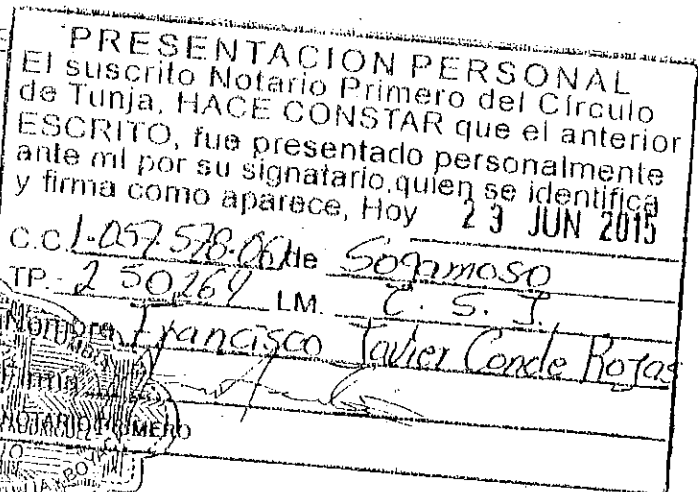 PRESENTACION PERSONAL
El suscrito Notario Primero del Círculo
de Tunja, HACE CONSTAR que el anterior
ESCRITO, fue presentado personalmente
ante mí por su signatario, quien se identifica
y firma como aparece, Hoy 23 JUN 2015
C.C. 1.057.578. de Sogamoso
TP.- 250264 LM. C. S. J.
Nombre Francisco Javier Conde Rojas
Firma
NOTARIO PRIMERO